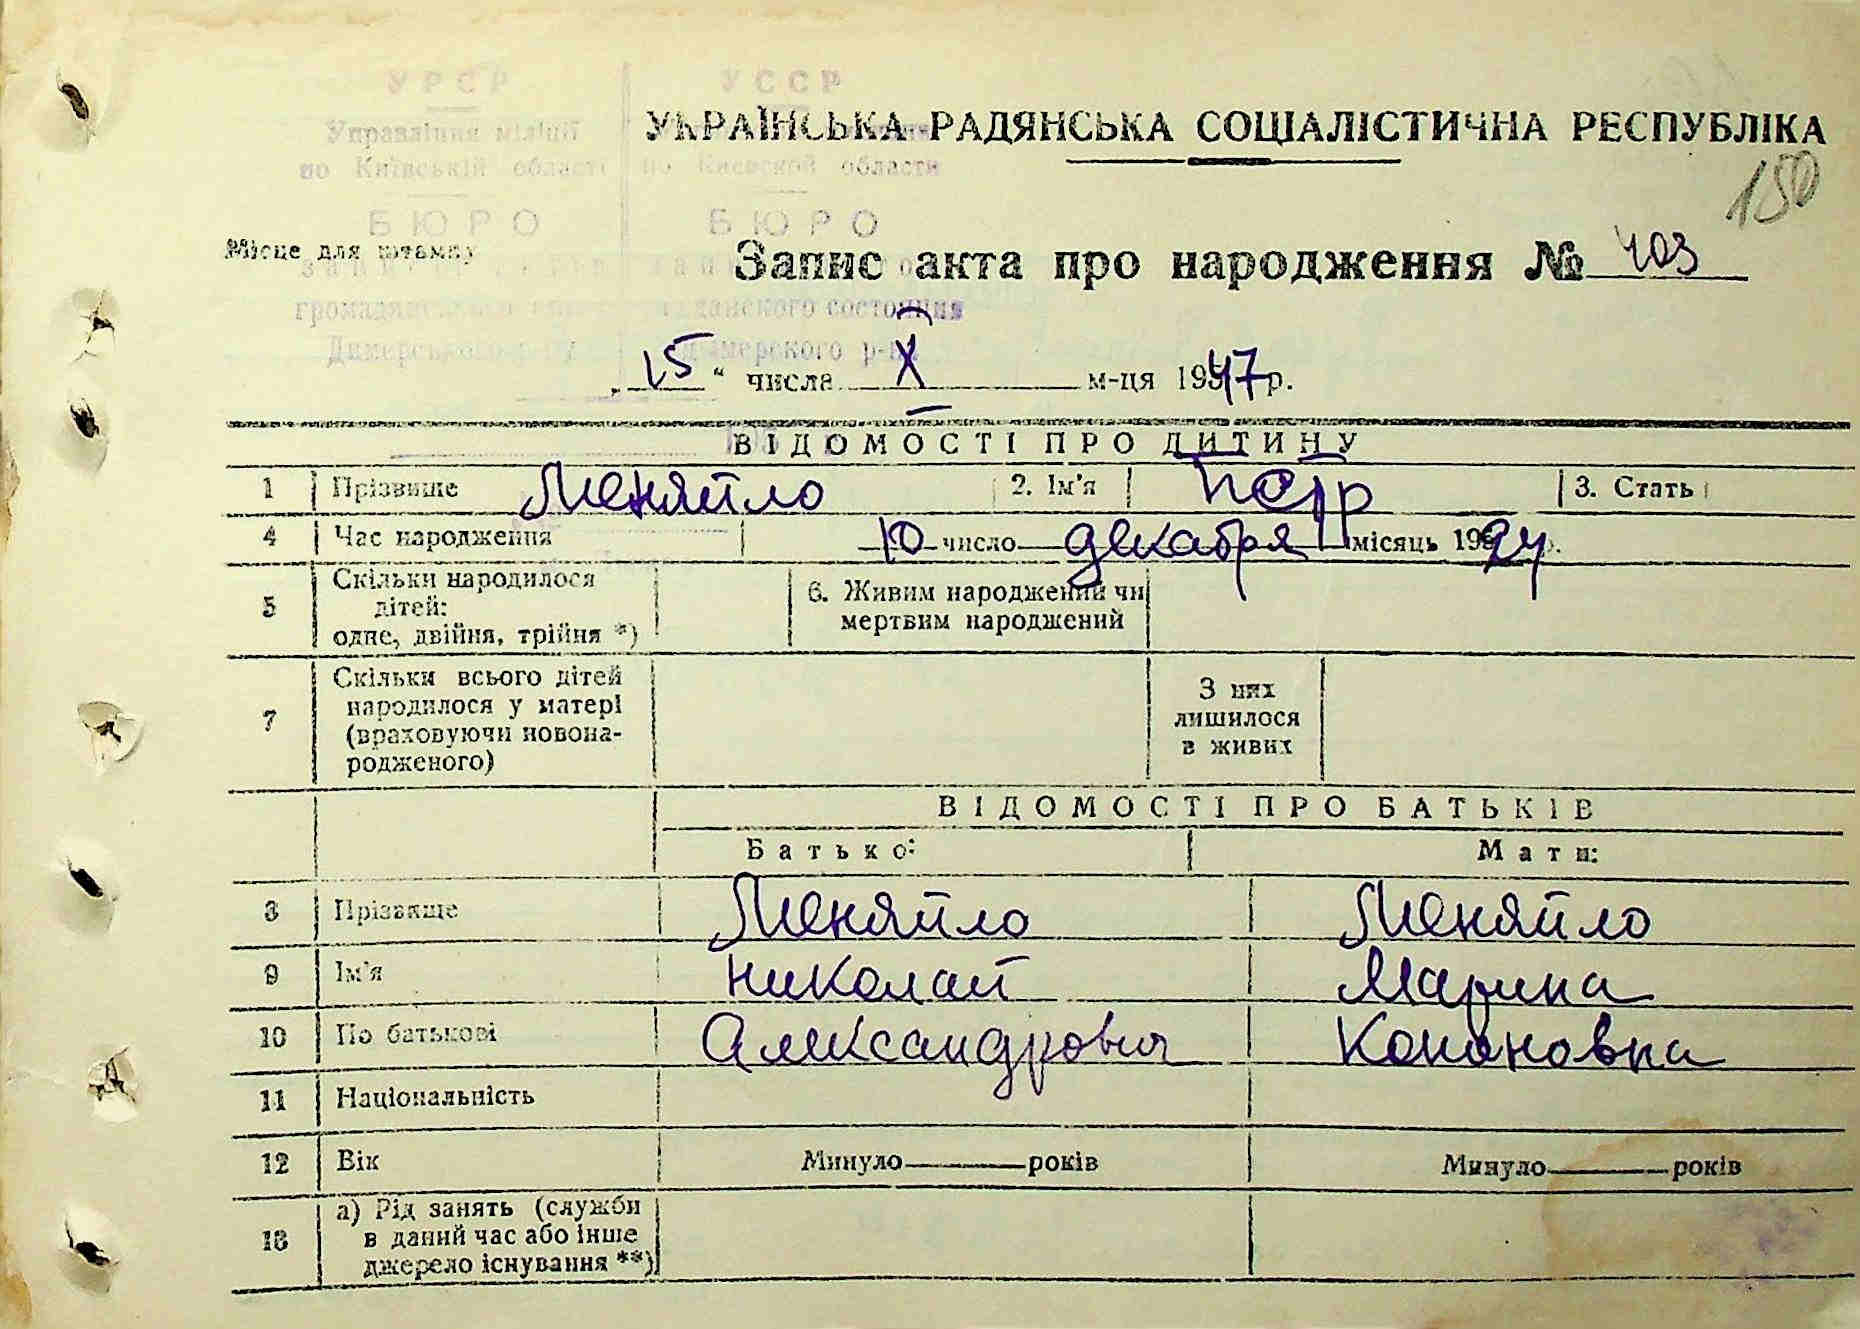 УРСР УССР
Управління міліції
УКРАЇНСЬКА РАДЯНСЬКА СОЦІАЛІСТИЧНА РЕСПУБЛІКА
по Київській області по Киевской области
150
БЮРО БЮРО
Місце для штампу
Запис акта про народження № 403
громадянського состояния
Димерського р-ну Дымерского р-на
„15“ числа X м-ця 1947 р.
ВІДОМОСТІ ПРО ДИТИНУ
1 Прізвище Меняйло 2. Ім'я Петр 3. Стать
4 Час народження 10 число декабря місяць 1924 р.
5 Скільки народилося дітей: одне, двійня, трійня *) 6. Живим народжений чи мертвим народжений
7 Скільки всього дітей народилося у матері (враховуючи новонародженого) З них лишилося в живих
ВІДОМОСТІ ПРО БАТЬКІВ
Батько: Мати:
8 Прізвище Меняйло Меняйло
9 Ім'я Николай Марина
10 По батькові Александрович Кононовна
11 Національність
12 Вік Минуло років Минуло років
13 а) Рід занять (служби в даний час або інше джерело існування **)